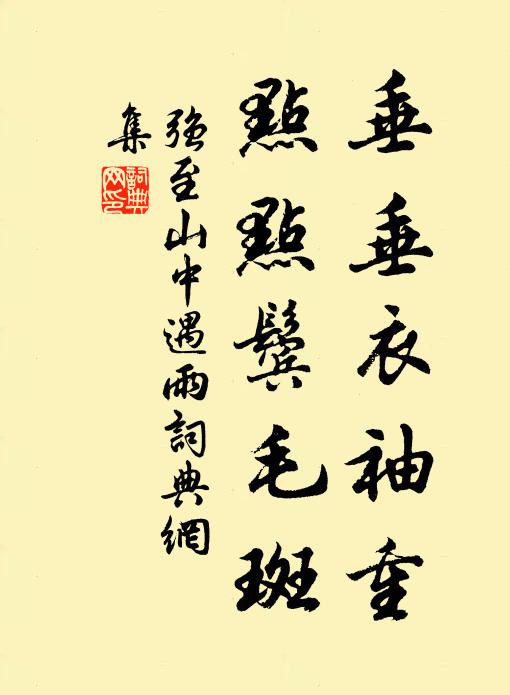 垂垂衣袖重
點點鬢毛斑
強至山中遇雨詞典網
集
詞典網印